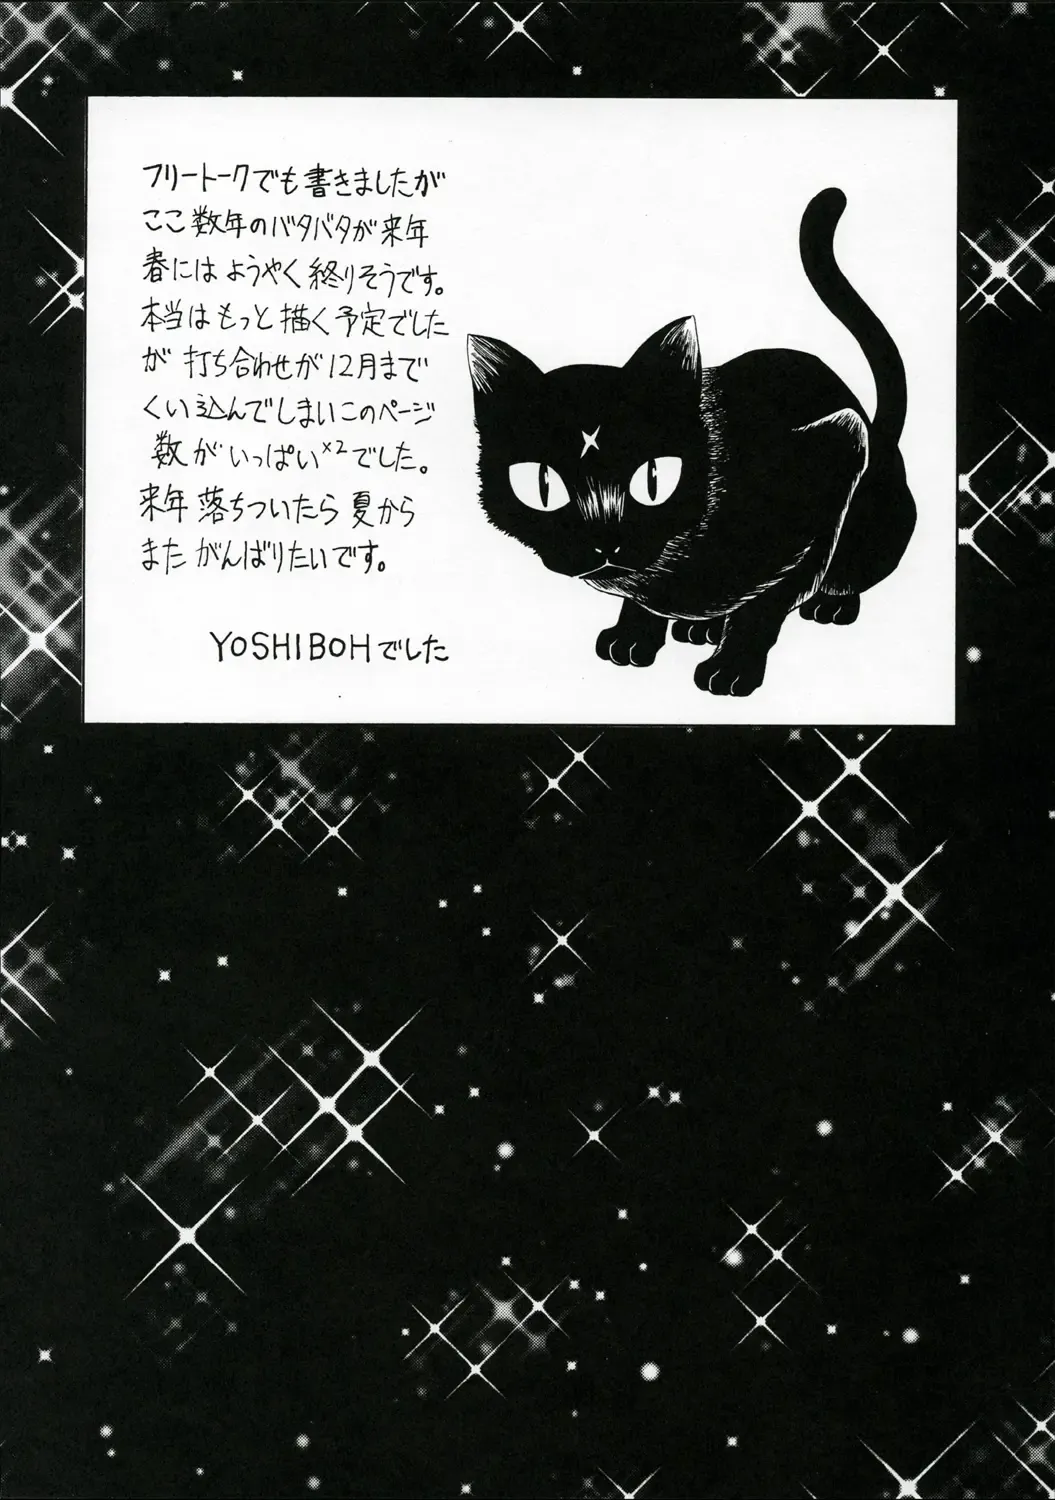 フリートークでも書きましたが
ここ数年のバタバタが来年
春にはようやく終りそうです。
本当はもっと描く予定でした
が打ち合わせが12月まで
くい込んでしまいこのページ
数がいっぱい×2でした。
来年落ちついたら夏から
またがんばりたいです。
YOSHIBOHでした